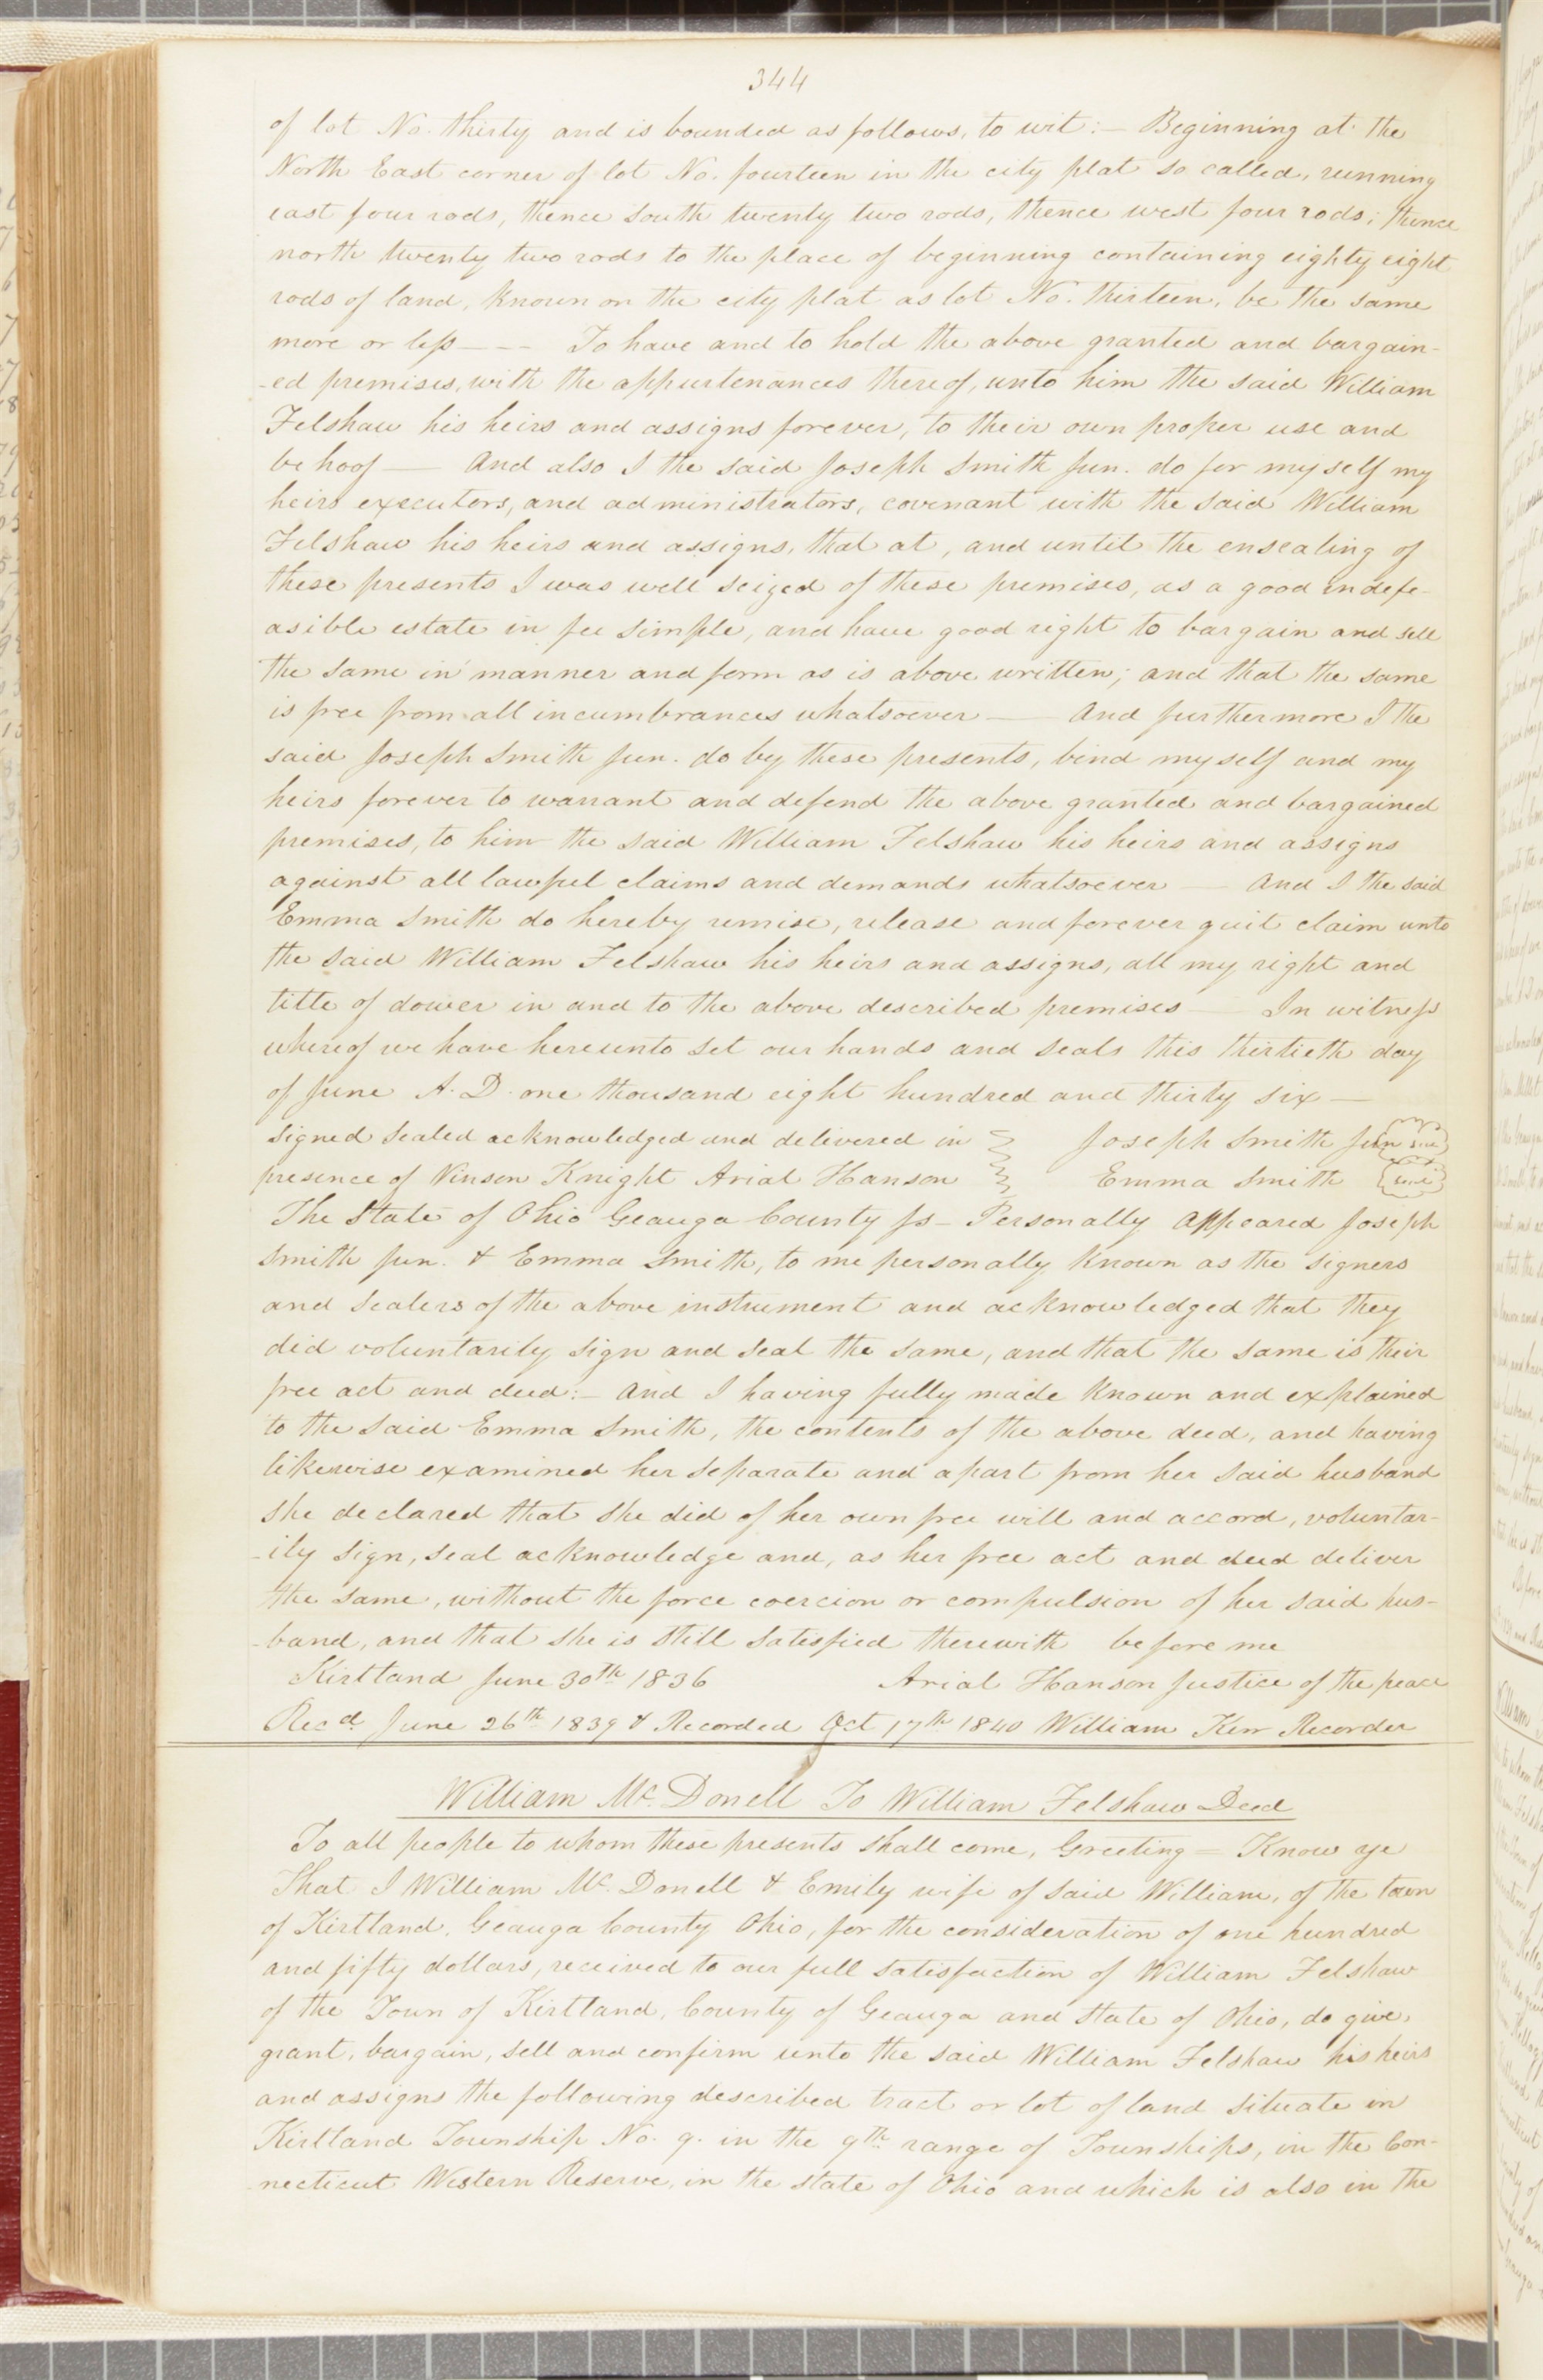 344
of lot No. thirty and is bounded as follows, to wit:— Beginning at the
North East corner of lot No. fourteen in the city plat so called, running
east four rods, thence south twenty two rods, thence west four rods; thence
north twenty two rods to the place of beginning containing eighty eight
rods of land, known on the city plat as lot No. thirteen, be the same
more or less — — — To have and to hold the above granted and bargain-
-ed premises, with the appurtenances thereof, unto him the said William
Felshaw his heirs and assigns forever, to their own proper use and
behoof — And also I the said Joseph Smith Jun. do for myself my
heirs executors, and administrators, covenant with the said William
Felshaw his heirs and assigns, that at, and until the ensealing of
these presents I was well seized of these premises, as a good indefe-
asible estate in fee simple, and have good right to bargain and sell
the same in manner and form as is above written; and that the same
is free from all incumbrances whatsoever — And furthermore I the
said Joseph Smith Jun. do by these presents, bind myself and my
heirs forever to warrant and defend the above granted and bargained
premises, to him the said William Felshaw his heirs and assigns
against all lawful claims and demands whatsoever — And I the said
Emma Smith do hereby remise, release and forever quit claim unto
the said William Felshaw his heirs and assigns, all my right and
title of dower in and to the above described premises — In witness
whereof we have hereunto set our hands and seals this thirtieth day
of June A. D. one thousand eight hundred and thirty six —
Signed sealed acknowledged and delivered in Joseph Smith Jun seal
presence of Vinson Knight Arial Hanson Emma Smith seal
The State of Ohio Geauga County ss — Personally appeared Joseph
Smith Jun. & Emma Smith, to me personally known as the signers
and sealers of the above instrument and acknowledged that they
did voluntarily sign and seal the same, and that the same is their
free act and deed:— And I having fully made known and explained
to the said Emma Smith, the contents of the above deed, and having
likewise examined her separate and apart from her said husband
she declared that she did of her own free will and accord, voluntar-
-ily sign, seal acknowledge and, as her free act and deed deliver
the same, without the force coercion or compulsion of her said hus-
-band, and that she is still satisfied therewith before me
Kirtland June 30th 1836 Arial Hanson Justice of the peace
Recd June 26th 1839 & Recorded Oct 17th 1840 William Kerr Recorder
William Mc. Donell To William Felshaw Deed
To all people to whom these presents shall come, Greeting = Know ye
That I William Mc. Donell & Emily wife of said William, of the town
of Kirtland, Geauga County Ohio, for the consideration of one hundred
and fifty dollars, received to our full satisfaction of William Felshaw
of the Town of Kirtland, County of Geauga and State of Ohio, do give,
grant, bargain, sell and confirm unto the said William Felshaw his heirs
and assigns the following described tract or lot of land situate in
Kirtland Township No. 9. in the 9th range of Townships, in the Con-
necticut Western Reserve, in the state of Ohio and which is also in the